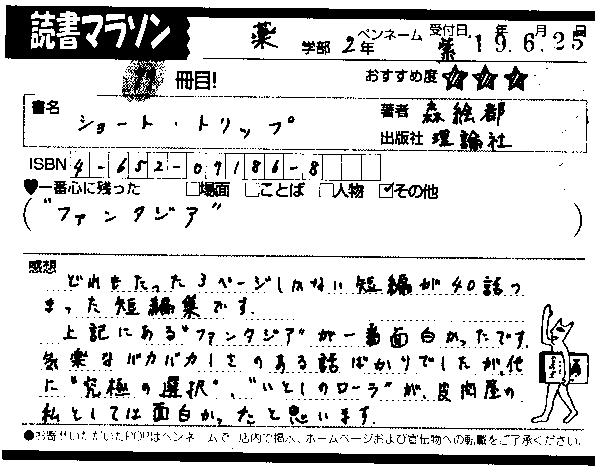 読書マラソン
薬 学部 2年 ペンネーム 紫 受付日 19年6月25日
冊目! おすすめ度 ☆☆☆
書名 ショート・トリップ
著者 森絵都
出版社 理論社
ISBN 4-652-07186-8
♥一番心に残った □場面 □ことば □人物 ☑その他
("ファンタジア")
感想
どれもたった3ページしかない短編が40話つ
まった短編集です。
上記にある"ファンタジア"が一番面白かったです。
気楽なバカバカしさのある話ばかりでしたが、他
に"究極の選択"、"いとしのローラ"が、皮肉屋の
私としては面白かったと思います。
●お寄せいただいたPOPはペンネームで、店内で掲示、ホームページおよび宣伝物への転載をご了承ください。